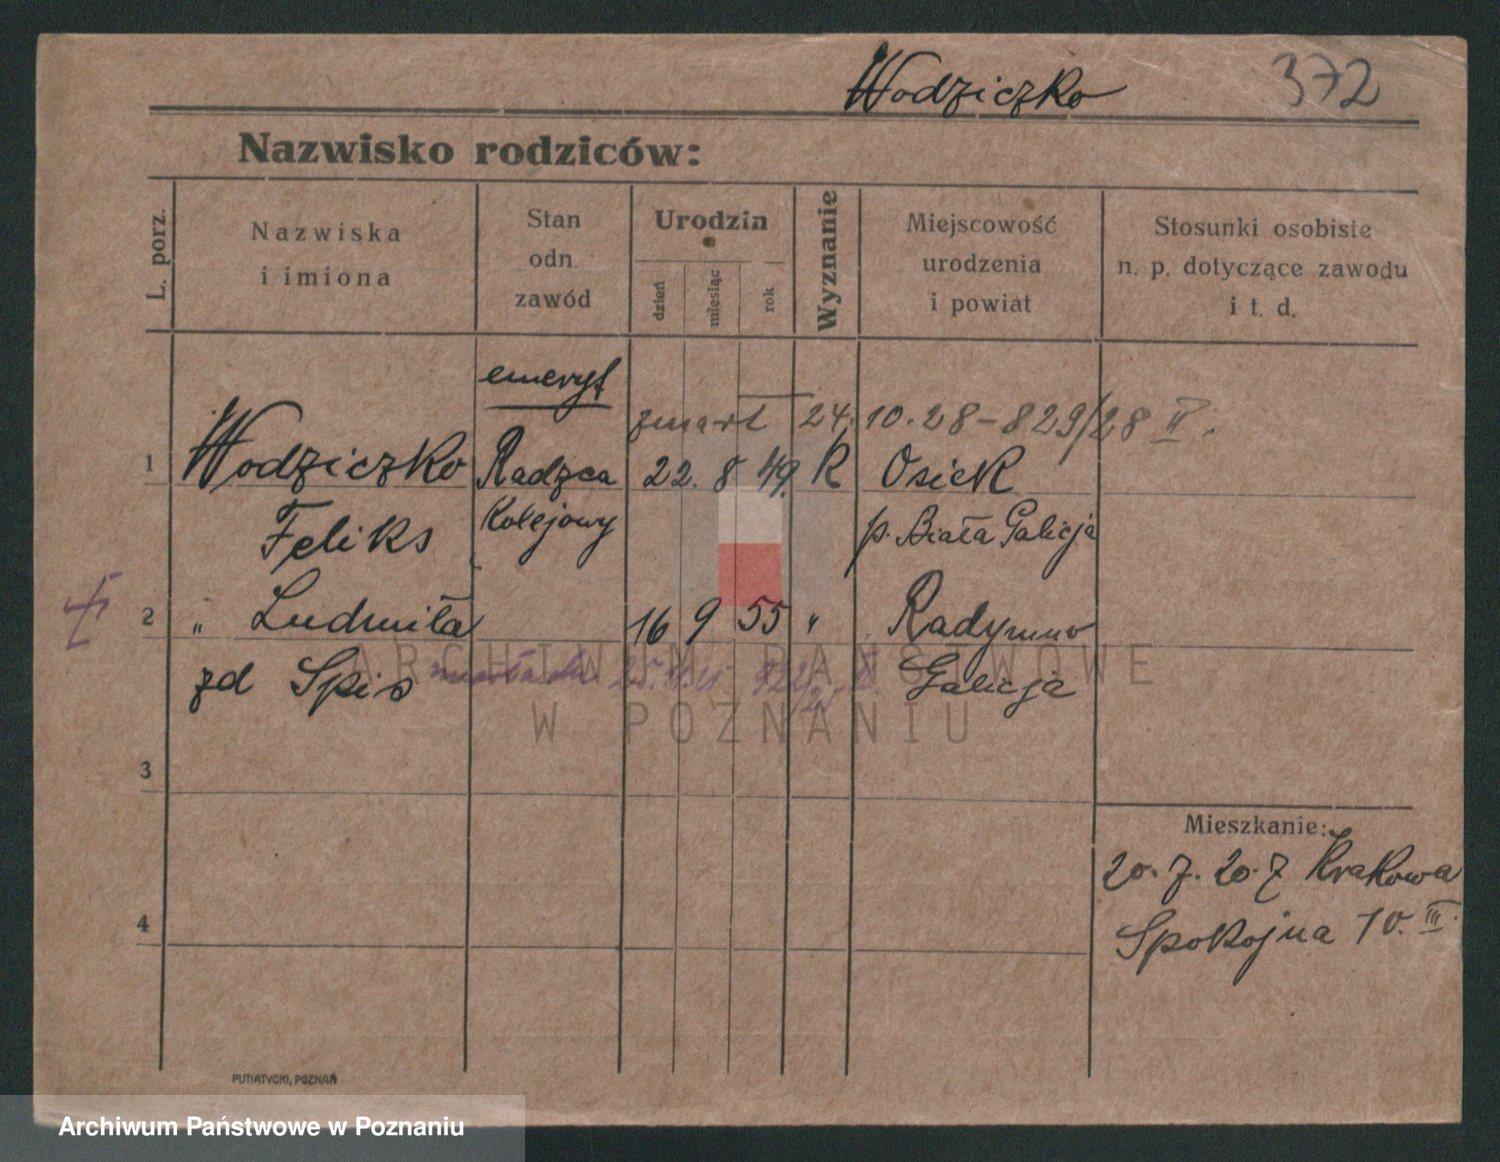 Wodziczko 372
Nazwisko rodziców:
L. porz.
Nazwiska
i imiona
Stan
odn.
zawód
Urodzin
dzień
miesiąc
rok
Wyznanie
Miejscowość
urodzenia
i powiat
Stosunki osobiste
n. p. dotyczące zawodu
i t. d.
emeryt
zmarł 24. 10. 28 - 829/28 II.
1 Wodziczko Radzca 22. 8 49. K Osiek
Feliks Kolejowy p. Biała Galicja
2 " Ludmiła 16 9 55 " Radymno
zd Spis Galicja
ARCHIWUM PAŃSTWOWE
W POZNANIU
3
Mieszkanie:
20. 7. 20. z Krakowa
4 Spokojna 10. III.
PUTIATYCKI, POZNAŃ
Archiwum Państwowe w Poznaniu